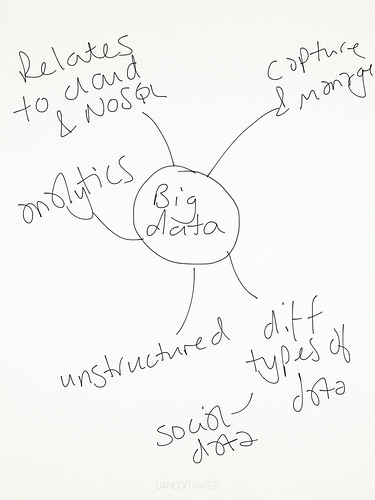 Relates
to cloud
& NoSQL
capture
& manage
analytics
Big
data
unstructured
diff
types of
data
social
data
BAMBOO PAPER